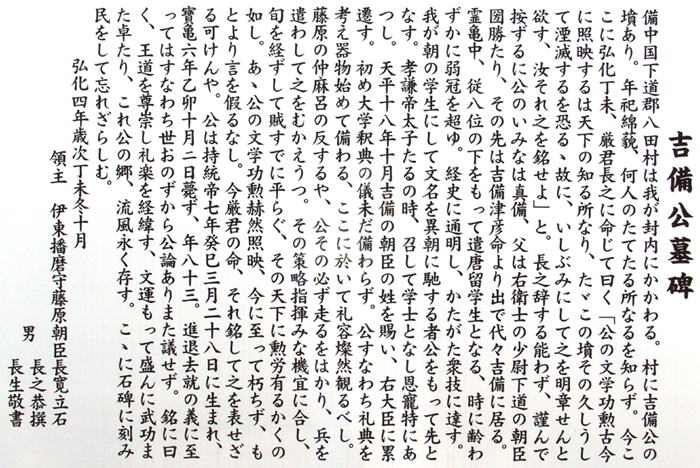 吉備公墓碑
備中国下道郡八田村は我が封内にかかわる。村に吉備公の
墳あり。年祀綿貌、何人のたてたる所なるを知らず。今こ
こに弘化丁未、厳君長之に命じて曰く「公の文学功勲古今
に照映するは天下の知る所なり、たゞこの墳その久しうし
て湮滅するを恐るゝ故に、いしぶみにして之を明章せんと
欲す、汝それ之を銘せよ」と。長之辞する能わず、謹んで
按ずるに公のいみなは真備、父は右衛士の少尉下道の朝臣
圀勝たり、その先は吉備津彦命より出で代々吉備に居る。
霊亀中、従八位の下をもって遣唐留学生となる、時に齢わ
ずかに弱冠を超ゆ。経史に通明し、かたがた衆技に達す。
我が朝の学生にして文名を異朝に馳する者公をもって先と
なす。孝謙帝太子たるの時、召して学士となし恩寵特にあ
つし。天平十八年十月吉備の朝臣の姓を賜い、右大臣に累
遷す。初め大学釈典の儀未だ備わらず。公すなわち礼典を
考え器物始めて備わる、ここに於いて礼容燦然観るべし。
藤原の仲麻呂の反するや、公その必ず走るをはかり、兵を
遣わして之をむかえうつ。その策略指揮みな機宜に合し、
旬を経ずして賊すでに平らぐ、その天下に勲労有るかくの
如し。あゝ公の文学功勲赫然照映、今に至って朽ちず、も
とより言を假るなし。今厳君の命、それ銘して之を表せざ
る可けんや。公は持統帝七年癸巳三月二十八日に生まれ、
寶亀六年乙卯十月二日薨ず、年八十三。進退去就の義に至
ってはすなわち世おのずから公論ありまた議せず。銘に曰
く、王道を尊崇し礼楽を経緯す、文運もって盛んに武功ま
た卓たり、これ公の郷、流風永く存す。こゝに石碑に刻み
民をして忘れざらしむ。
弘化四年歳次丁未冬十月
領主　伊東播磨守藤原朝臣長寛立石
男　長之恭撰
長生敬書